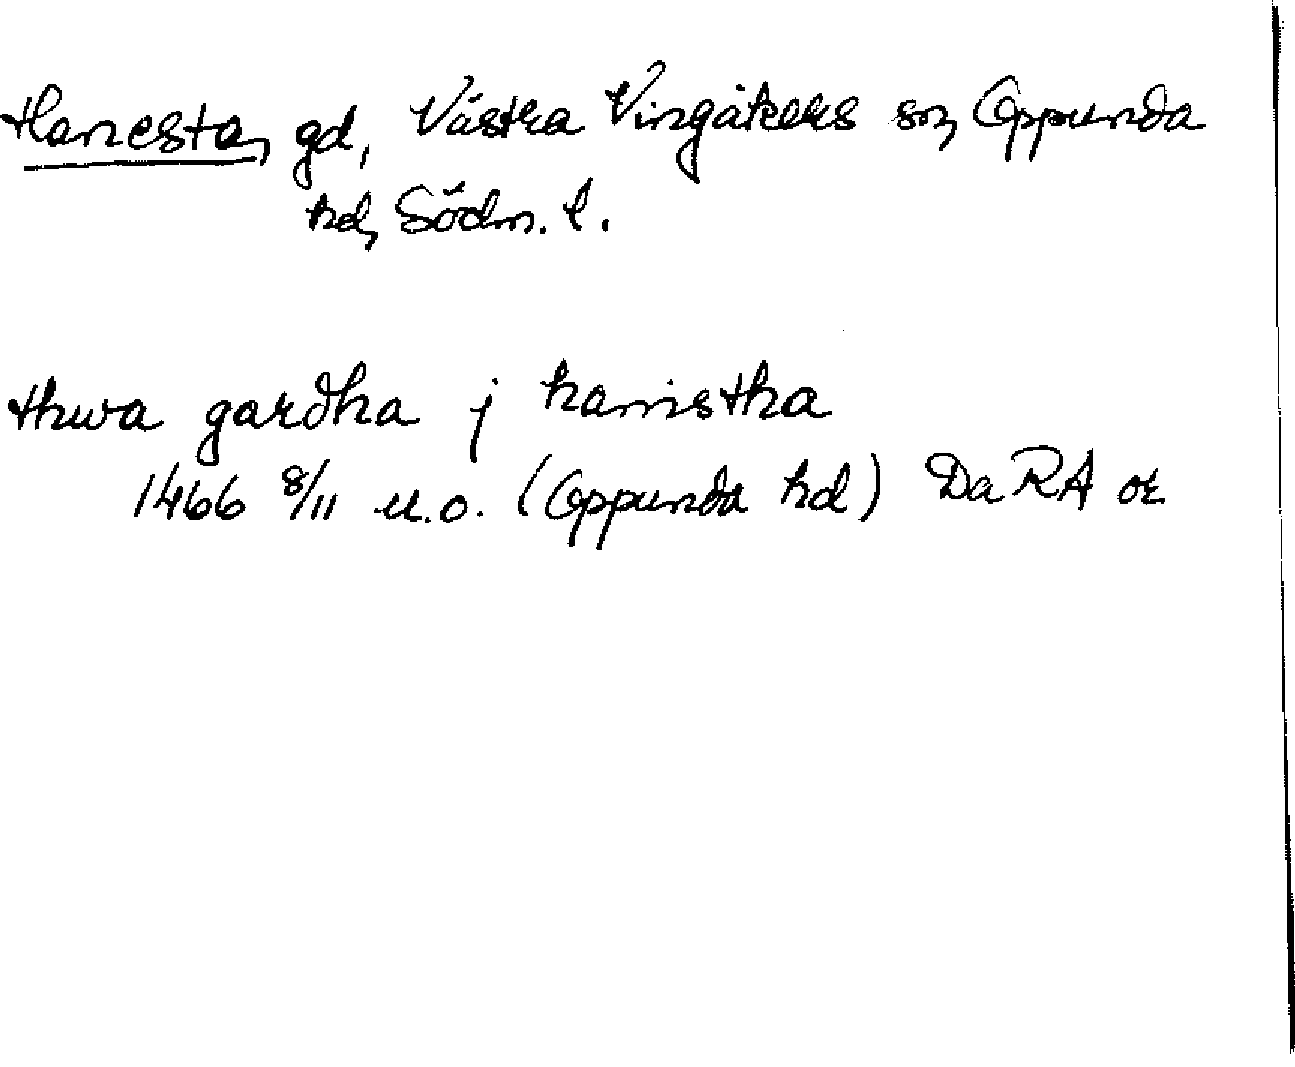 Hanesta, gd, Västra Vingåkers sn, Oppunda
hd, Södm. l.
thwa gardha j hanistha
1466 8/11 u.o. (Oppunda hd) DaRA or